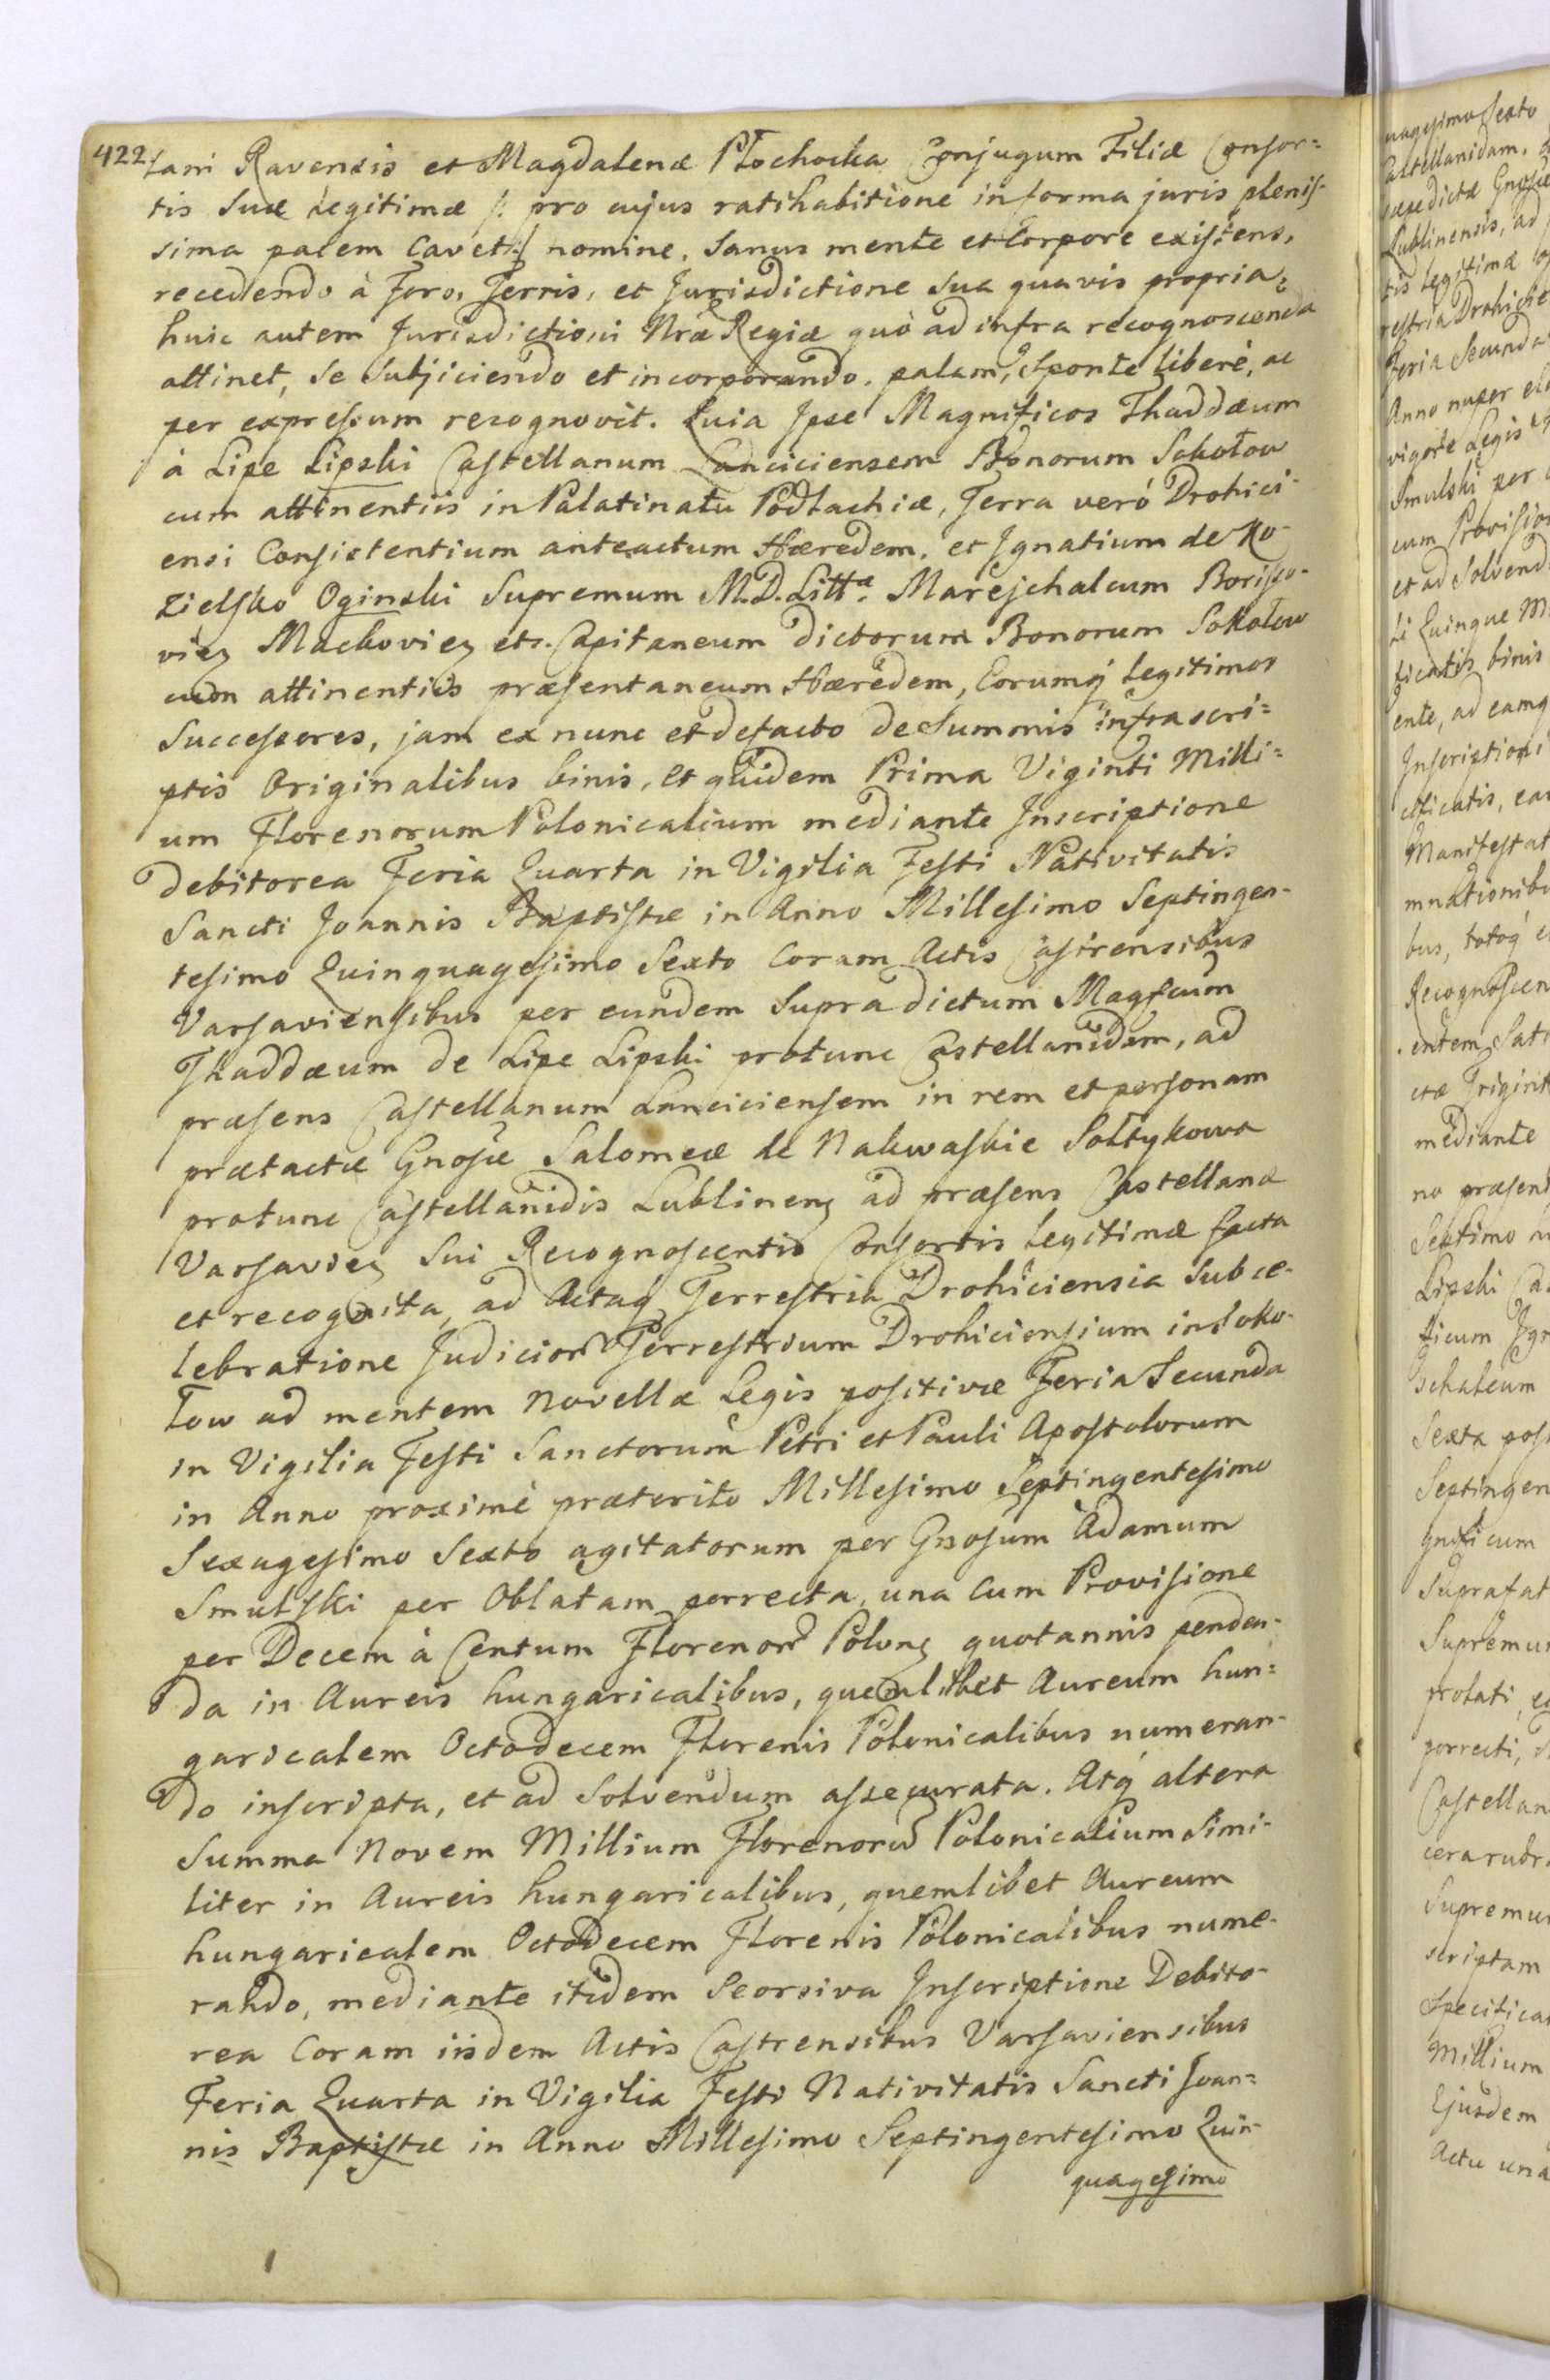 422
lani Ravensis et Magdalenæ Płochocka Conjugum Filiæ Consor=
tis Suæ Legitimæ /: pro cujus ratihabitione in forma juris plenis-
sima palem Cavet :/ nomine, Sanus mente et Corpore existens,
recedendo à Foro, Terris, et Jurisdictione sua quavis propria,
huic autem Jurisdictioni Nræ Regiæ quò ad infra recognoscenda
attinet, se Subjiciendo et incorporando, palam, Sponte liberè, ac
per expressum recognovit. Quia Ipse Magnificos Thaddæum
à Lipe Lipski Castellanum Lanciciensem Bonorum Sokołow
cum attinentiis in Palatinatu Podlachiæ, Terra verò Drohici-
ensi Consistentium anteactum Hæredem, et Ignatium de Ko-
zielsko Oginski Supremum M.D.Littæ. Mareschalcum Borisso-
viēn Mackoviēn etc. Capitaneum dictorum Bonorum Sokołow
cum attinentiis præsentaneum Hæredem, Eorumq́ legitimos
Successores, jam ex nunc et defacto de Summis infrascri=
ptis Originalibus binis, et quidem Prima Viginti Milli=
um Florenorum Polonicalium mediante Inscriptione
debitorea Feria Quarta in Vigilia Festi Nativitatis
Sancti Joannis Baptistæ in Anno Millesimo Septingen-
tesimo Quinquagesimo Sexto Coram Actis Castrensibus
Varsaviensibus per eundem Supra dictum Magfcum
Thaddæum de Lipe Lipski protunc Castellanidem, ad
præsens Castellanum Lanciciensem in rem et personam
prætactæ Gnosæ Salomeæ de Nakwaskie Sołtykowa
protunc Castellanidis Lublinenȝ ad præsens Castellanæ
Varsavienȝ Sui Recognoscentis Consortis legitimæ facta
et recognita, ad Actaq́ Terrestria Drohiciensia sub ce-
lebratione Judiciorum Terrestrium Drohiciensium in Soko-
łow ad mentem Novellæ Legis positivæ Feria Secunda
in Vigilia Festi Sanctorum Petri et Pauli Apostolorum
in Anno proximè præterito Millesimo Septingentesimo
Sexagesimo Sexto agitatorum per Gnosum Adamum
Smulski per Oblatam porrecta, una cum Provisione
per Decem à Centum Florenorum Polonȝ quotannis penden-
da in Aureis hungaricalibus, quemlibet Aureum hun=
garicalem Octodecem Florenis Polonicalibus numeran-
do inscripta, et ad Solvendum assecurata. Atq́ altera
Summa Novem Millium Florenorum Polonicalium Simi-
liter in Aureis hungaricalibus, quemlibet Aureum
hungaricalem Octodecem Florenis Polonicalibus nume-
rando, mediante itidem Seorsiva Inscriptione Debito-
rea Coram iisdem Actis Castrensibus Varsaviensibus
Feria Quarta in Vigilia Festi Nativitatis Sancti Joan=
nis Baptistæ in Anno Millesimo Septingentesimo Quin-
quagesimo